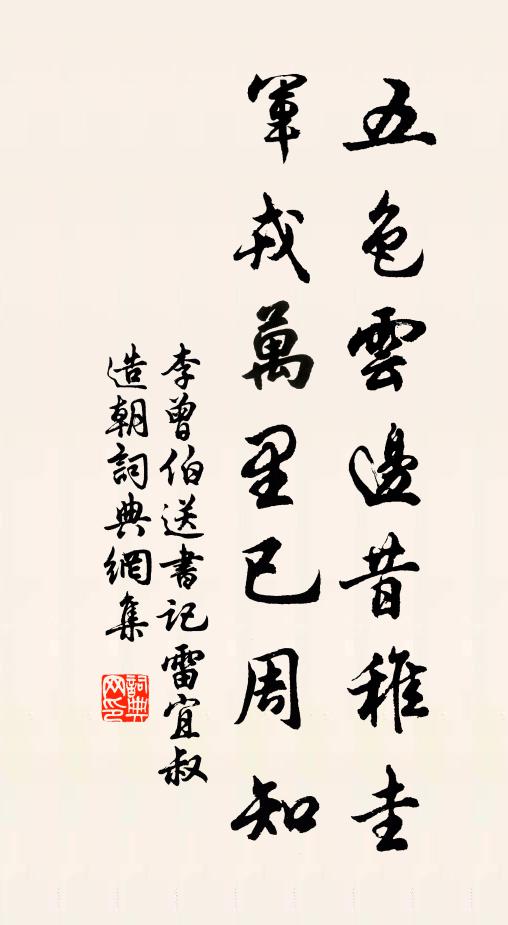 五色雲邊昔稚圭
軍戎萬里已周知
李曾伯送書記雷宜叔
造朝詞典網集
詞典网印